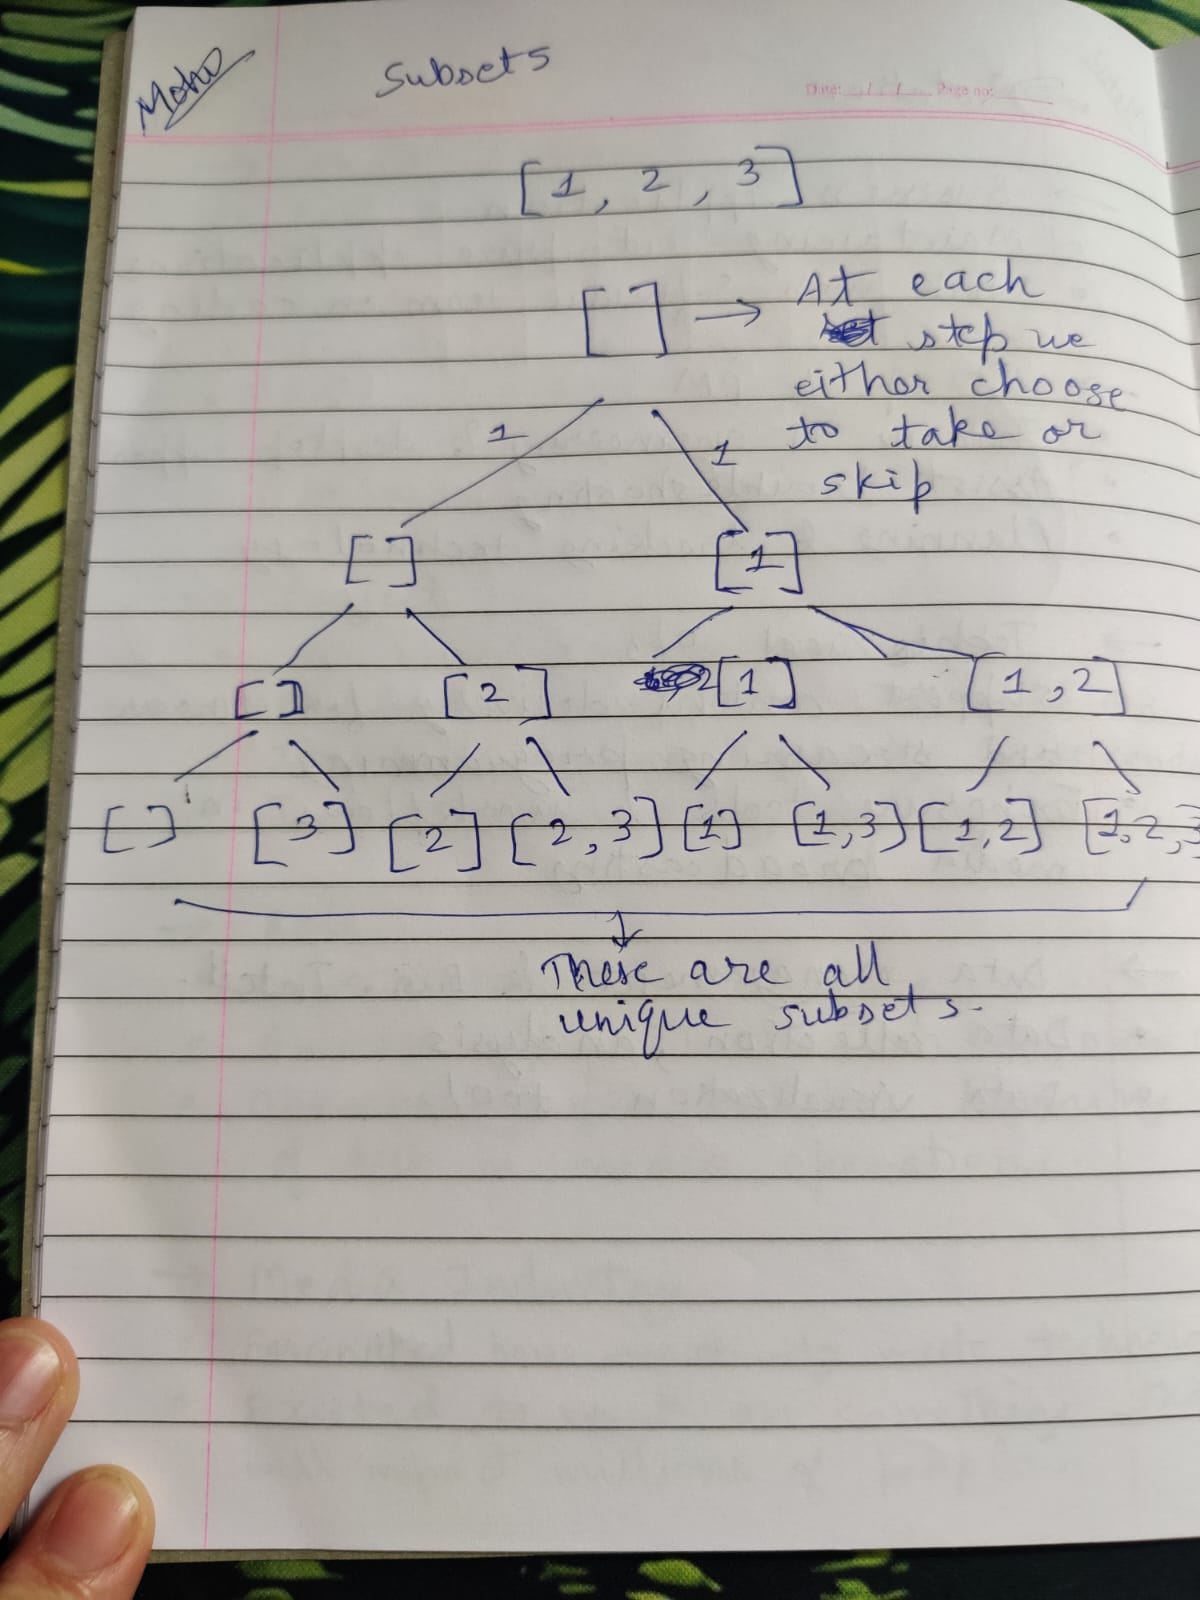 Subsets
Date: Page no:
[1, 2, 3]
[ ] → At each
step we
either choose
to take or
skip
1 1
[ ] [1]
[ ] [2] [1] [1,2]
[ ] [3] [2] [2,3] [1] [1,3] [1,2] [1,2,3
These are all
unique subsets.